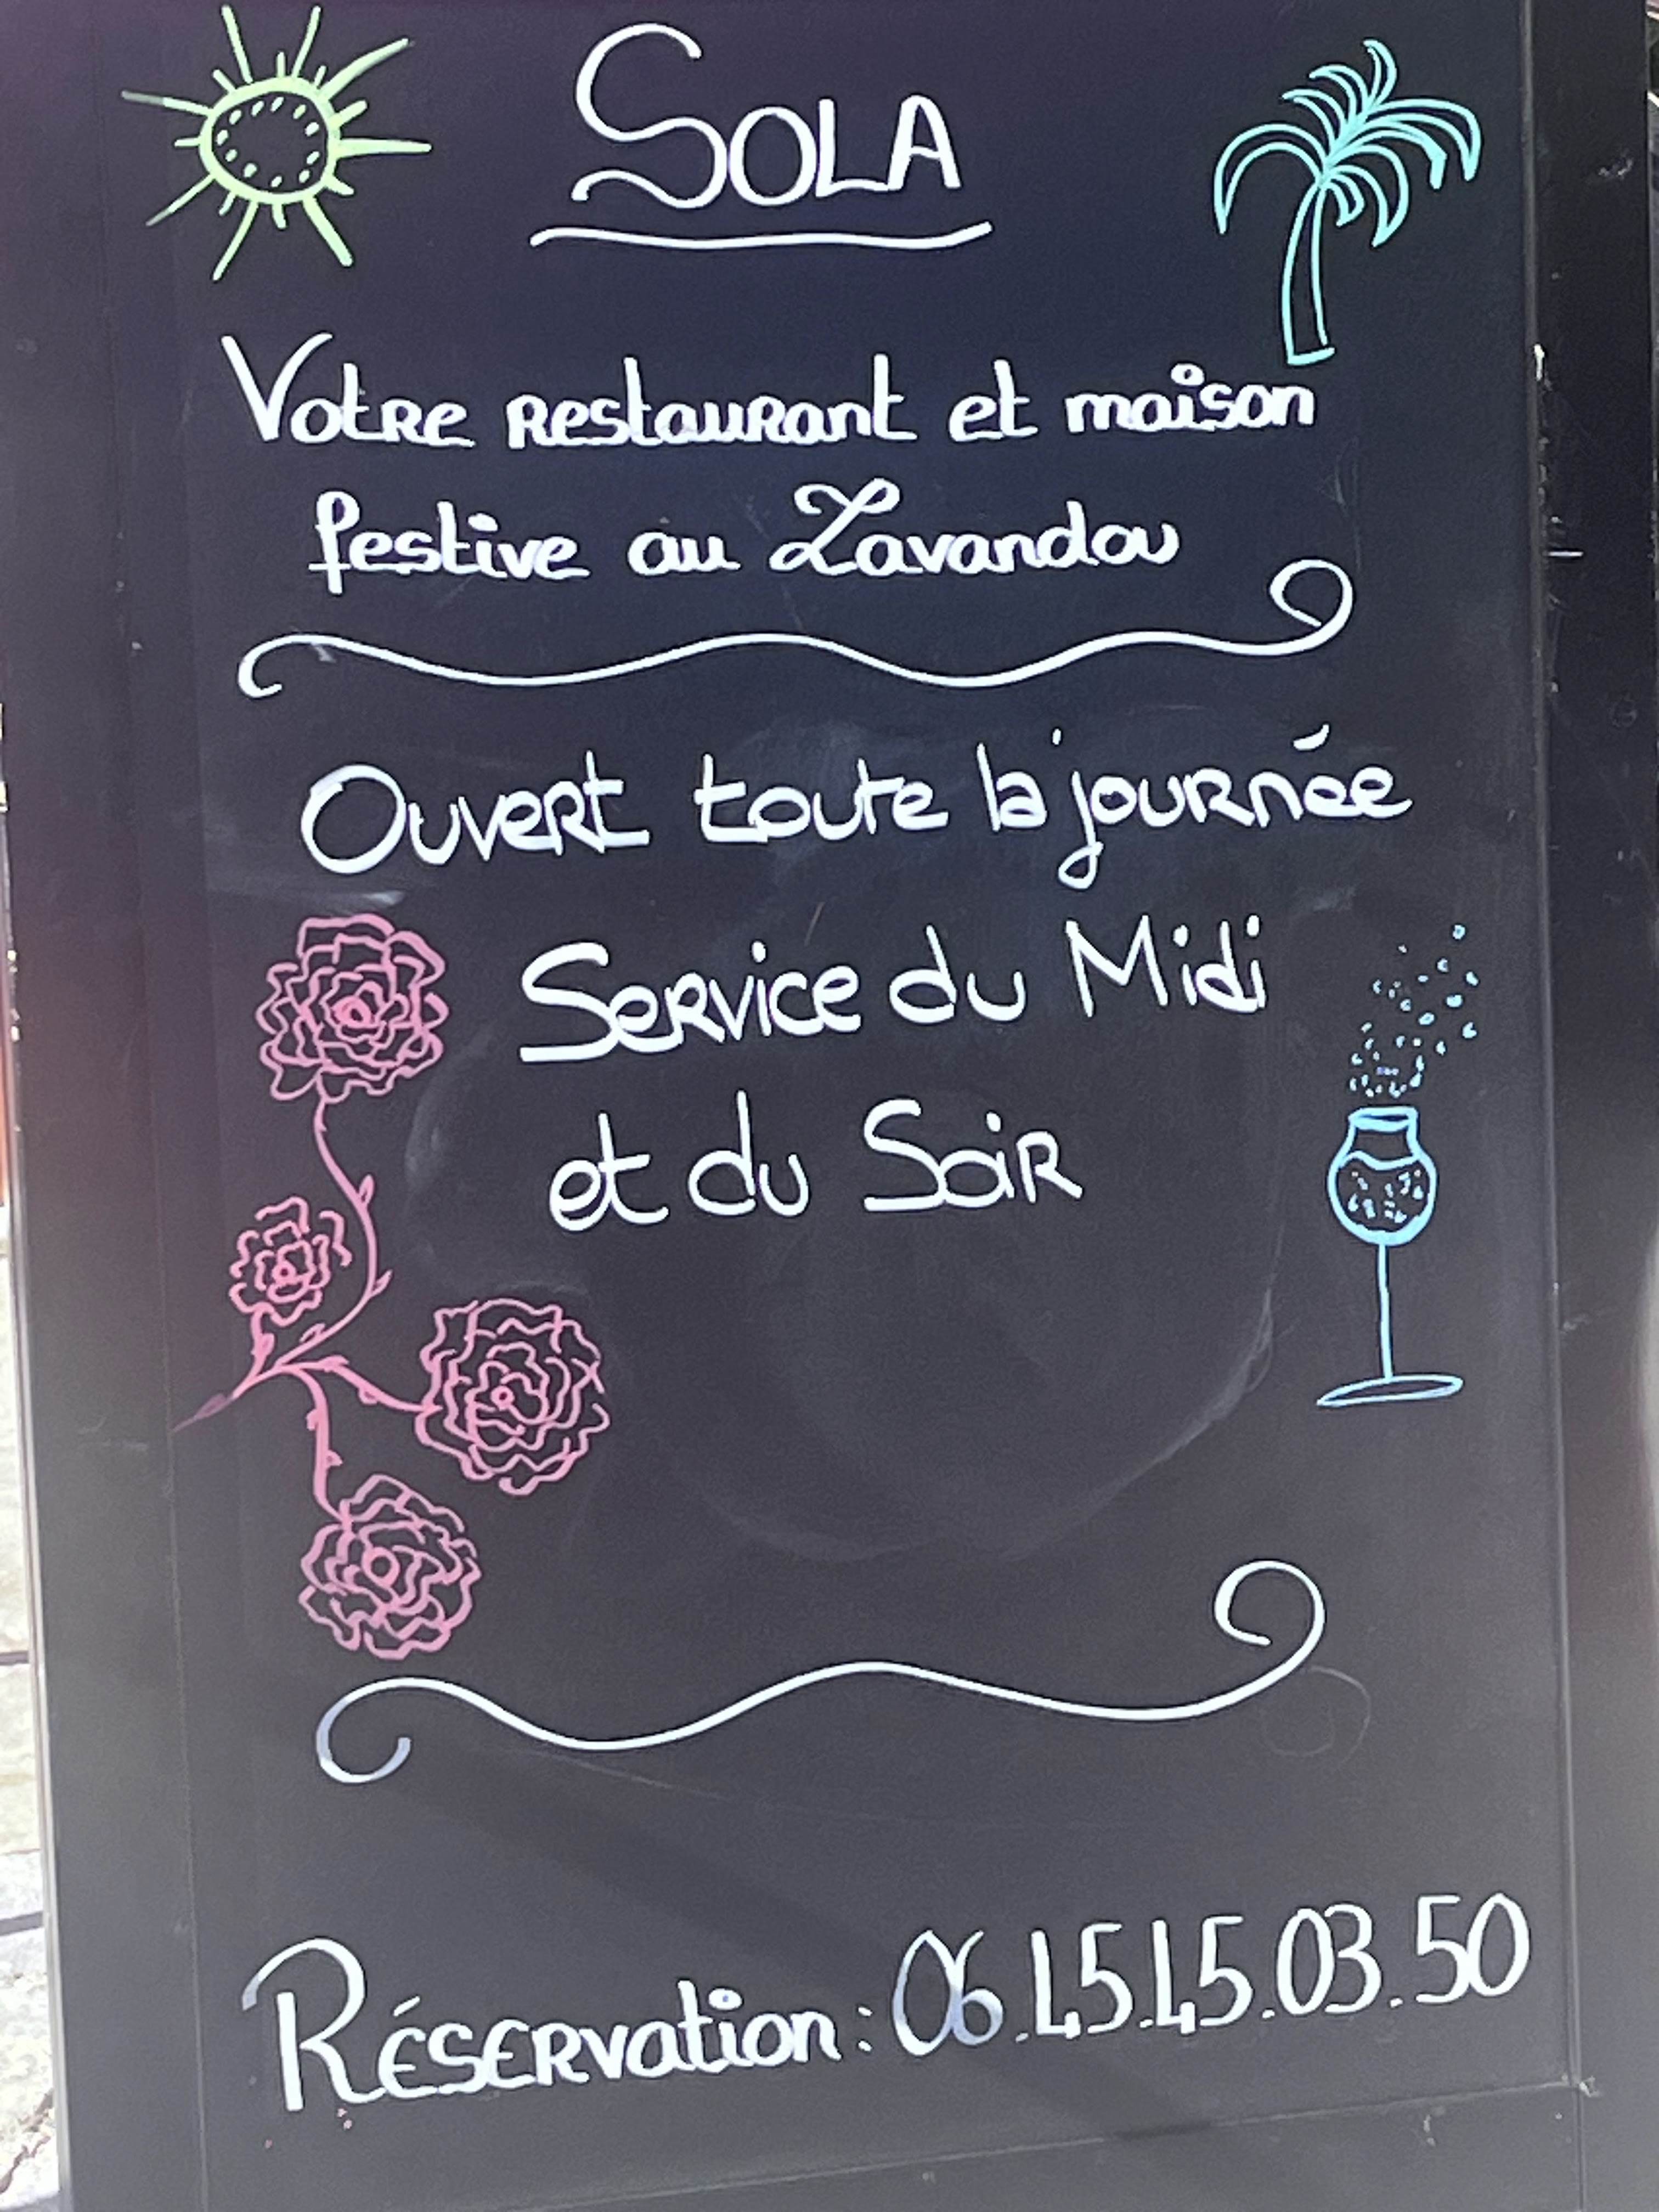 SOLA
Votre restaurant et maison
festive au Lavandou
Ouvert toute la journée
Service du Midi
et du Soir
Réservation : 06.45.45.03.50